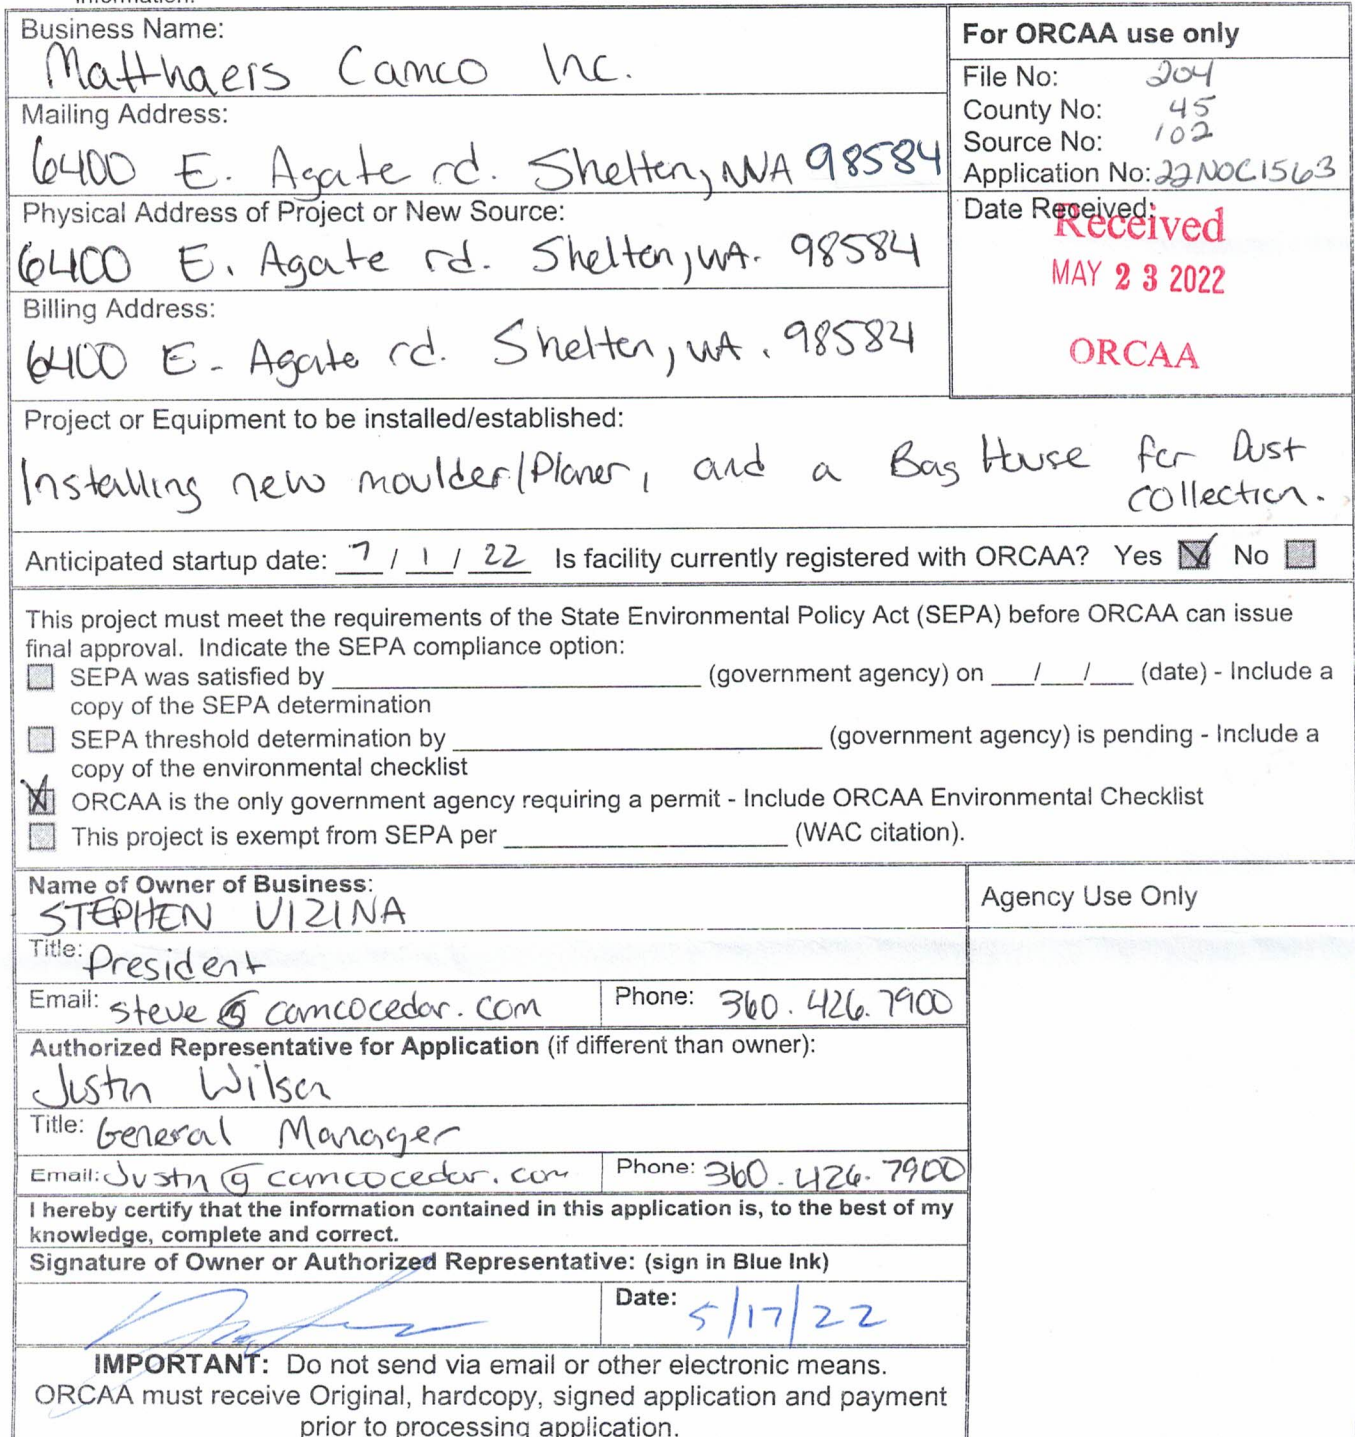 information.
Business Name:
Matthaers Camco Inc.
Mailing Address:
6400 E. Agate rd. Shelton, WA 98584
Physical Address of Project or New Source:
6400 E. Agate rd. Shelton, WA. 98584
Billing Address:
6400 E. Agate rd. Shelton, WA. 98584
For ORCAA use only
File No: 204
County No: 45
Source No: 102
Application No: 22NOC1563
Date Received:
Received
MAY 23 2022
ORCAA
Project or Equipment to be installed/established:
Installing new moulder/Planer, and a Bag House for Dust
collection.
Anticipated startup date: 7 / 1 / 22 Is facility currently registered with ORCAA? Yes No
This project must meet the requirements of the State Environmental Policy Act (SEPA) before ORCAA can issue
final approval. Indicate the SEPA compliance option:
SEPA was satisfied by ____ (government agency) on ___/___/___ (date) - Include a
copy of the SEPA determination
SEPA threshold determination by ____ (government agency) is pending - Include a
copy of the environmental checklist
ORCAA is the only government agency requiring a permit - Include ORCAA Environmental Checklist
This project is exempt from SEPA per ____ (WAC citation).
Name of Owner of Business:
STEPHEN VIZINA
Title: President
Email: steve@camcocedar.com Phone: 360.426.7900
Authorized Representative for Application (if different than owner):
Justin Wilson
Title: General Manager
Email: Justin@camcocedar.com Phone: 360.426.7900
I hereby certify that the information contained in this application is, to the best of my
knowledge, complete and correct.
Signature of Owner or Authorized Representative: (sign in Blue Ink)
Date: 5/17/22
IMPORTANT: Do not send via email or other electronic means.
ORCAA must receive Original, hardcopy, signed application and payment
prior to processing application.
Agency Use Only